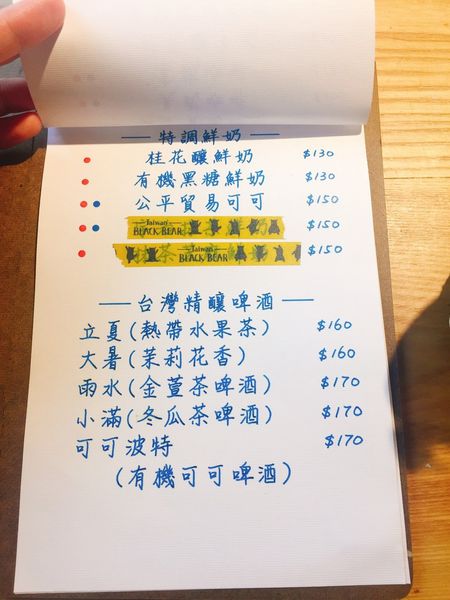 特調鮮奶
桂花釀鮮奶 $130
有機黑糖鮮奶 $130
公平貿易可可 $150
Taiwan BLACK BEAR $150
Taiwan BLACK BEAR $150
台灣精釀啤酒
立夏(熱帶水果茶) $160
大暑(茉莉花香) $160
雨水(金萱茶啤酒) $170
小滿(冬瓜茶啤酒) $170
可可波特 $170
(有機可可啤酒)